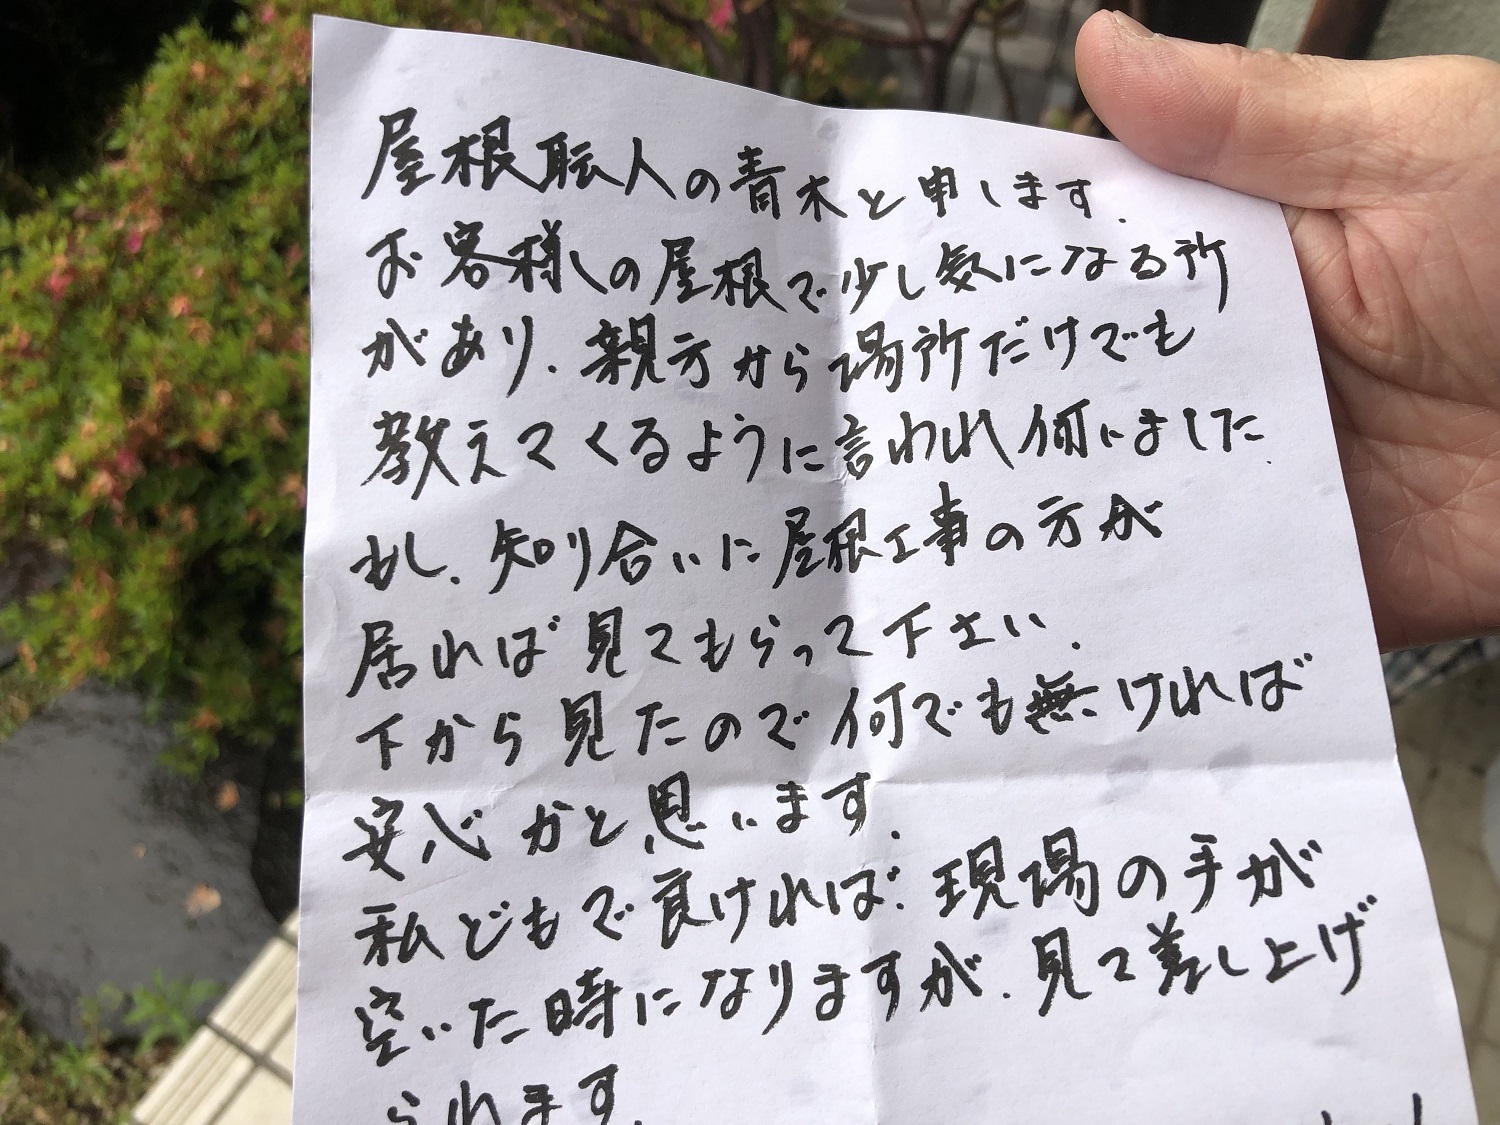 屋根職人の青木と申します.
お客様しの屋根で少し気になる所
があり.親方から場所だけでも
教えてくるように言われ伺いました.
もし.知り合いに屋根工事の方が
居れば見てもらって下さい.
下から見たので何でも無ければ
安心かと思います.
私どもで良ければ.現場の手が
空いた時になりますが.見て差し上げ
られます.